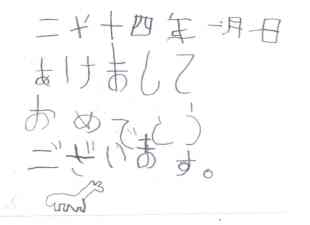 二千十四年 一月一日
あけまして
おめでとう
ございます。